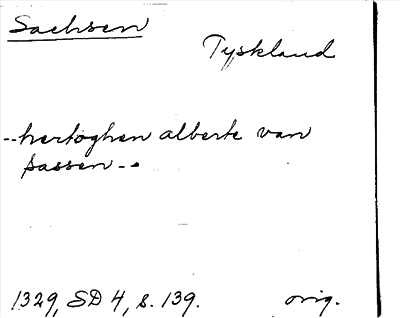 Sachsen
Tyskland
--hertoghen alberte van
sassen--
1329, SD 4, s. 139. orig.